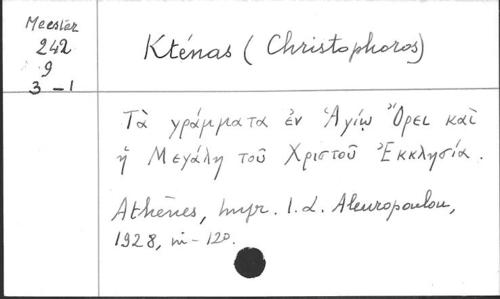 Meester
242
9
3-1
Kténas (Christophoros)
Τὰ γράμματα ἐν Ἁγίῳ Ὄρει καὶ
ἡ Μεγάλη τοῦ Χριστοῦ Ἐκκλησία.
Athènes, Impr. I.L. Aleuropoulou,
1928, in-12°.